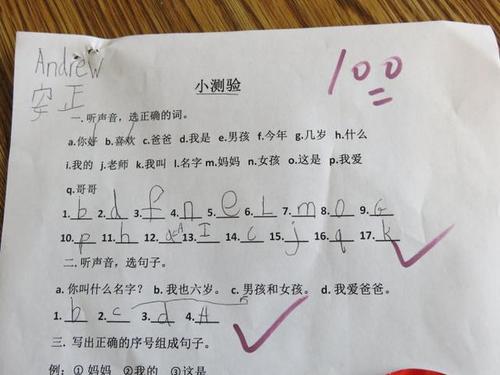 Andrew
安正
小测验
100
一. 听声音，选正确的词。
a.你好 b.喜欢 c.爸爸 d.我是 e.男孩 f.今年 g.几岁 h.什么
i.我的 j.老师 k.我叫 l.名字 m.妈妈 n.女孩 o.这是 p.我爱
q.哥哥
1. b 2. d 3. f 4. n 5. e 6. L 7. m 8. o 9. G
10. p 11. h 12. a 13. I 14. c 15. j 16. q 17. k
二. 听声音，选句子。
a. 你叫什么名字？ b. 我也六岁。 c. 男孩和女孩。 d. 我爱爸爸。
1. b 2. c 3. d 4. A
三. 写出正确的序号组成句子。
例：①妈妈 ②我的 ③这是